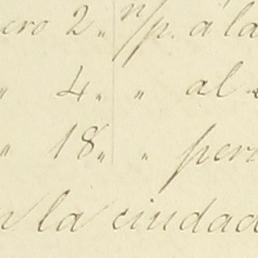 ero 2„ r/p. á la
„ 4„ „ al
„ 18„ „ peri
n la ciudad